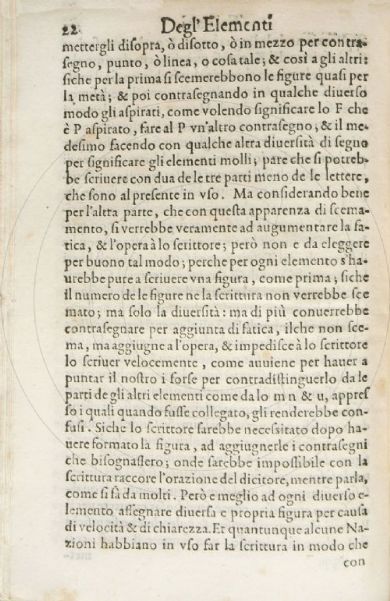 22. Degl' Elementi
mettergli disopra, ò disotto, ò in mezzo per contra-
segno, punto, ò linea, o cosa tale; & così a gli altri:
siche per la prima si scemerebbono le figure quasi per
la metà; & poi contrasegnando in qualche diuerso
modo gli aspirati, come volendo significare lo F che
è P aspirato, fare al P vn'altro contrasegno, & il me-
desimo facendo con qualche altra diuersità di segno
per significare gli elementi molli; pare che si potreb-
be scriuere con dua de le tre parti meno de le lettere,
che sono al presente in vso. Ma considerando bene
per l'altra parte, che con questa apparenza di scema-
mento, si verrebbe veramente ad augumentare la fa-
tica, & l'opera à lo scrittore; però non e da eleggere
per buono tal modo; perche per ogni elemento s'ha-
urebbe pure a scriuere vna figura, come prima; siche
il numero de le figure ne la scrittura non verrebbe sce
mato; ma solo la diuersità: ma di più conuerrebbe
contrasegnare per aggiunta di fatica, ilche non sce-
ma, ma aggiugne a l'opera, & impedisce à lo scrittore
lo scriuer velocemente, come auuiene per hauer a
puntar il nostro i forse per contradistinguerlo da le
parti de gli altri elementi come da lo m n & u, appres-
so i quali quando fusse collegato, gli renderebbe con-
fusi. Siche lo scrittore sarebbe necessitato dopo ha-
uere formato la figura, ad aggiugnerle i contrasegni
che bisognassero; onde sarebbe impossibile con la
scrittura raccore l'orazione del dicitore, mentre parla,
come si fà da molti. Però e meglio ad ogni diuerso e-
lemento assegnare diuersa e propria figura per causa
di velocità & di chiarezza. Et quantunque alcune Na-
zioni habbiano in vso far la scrittura in modo che
con